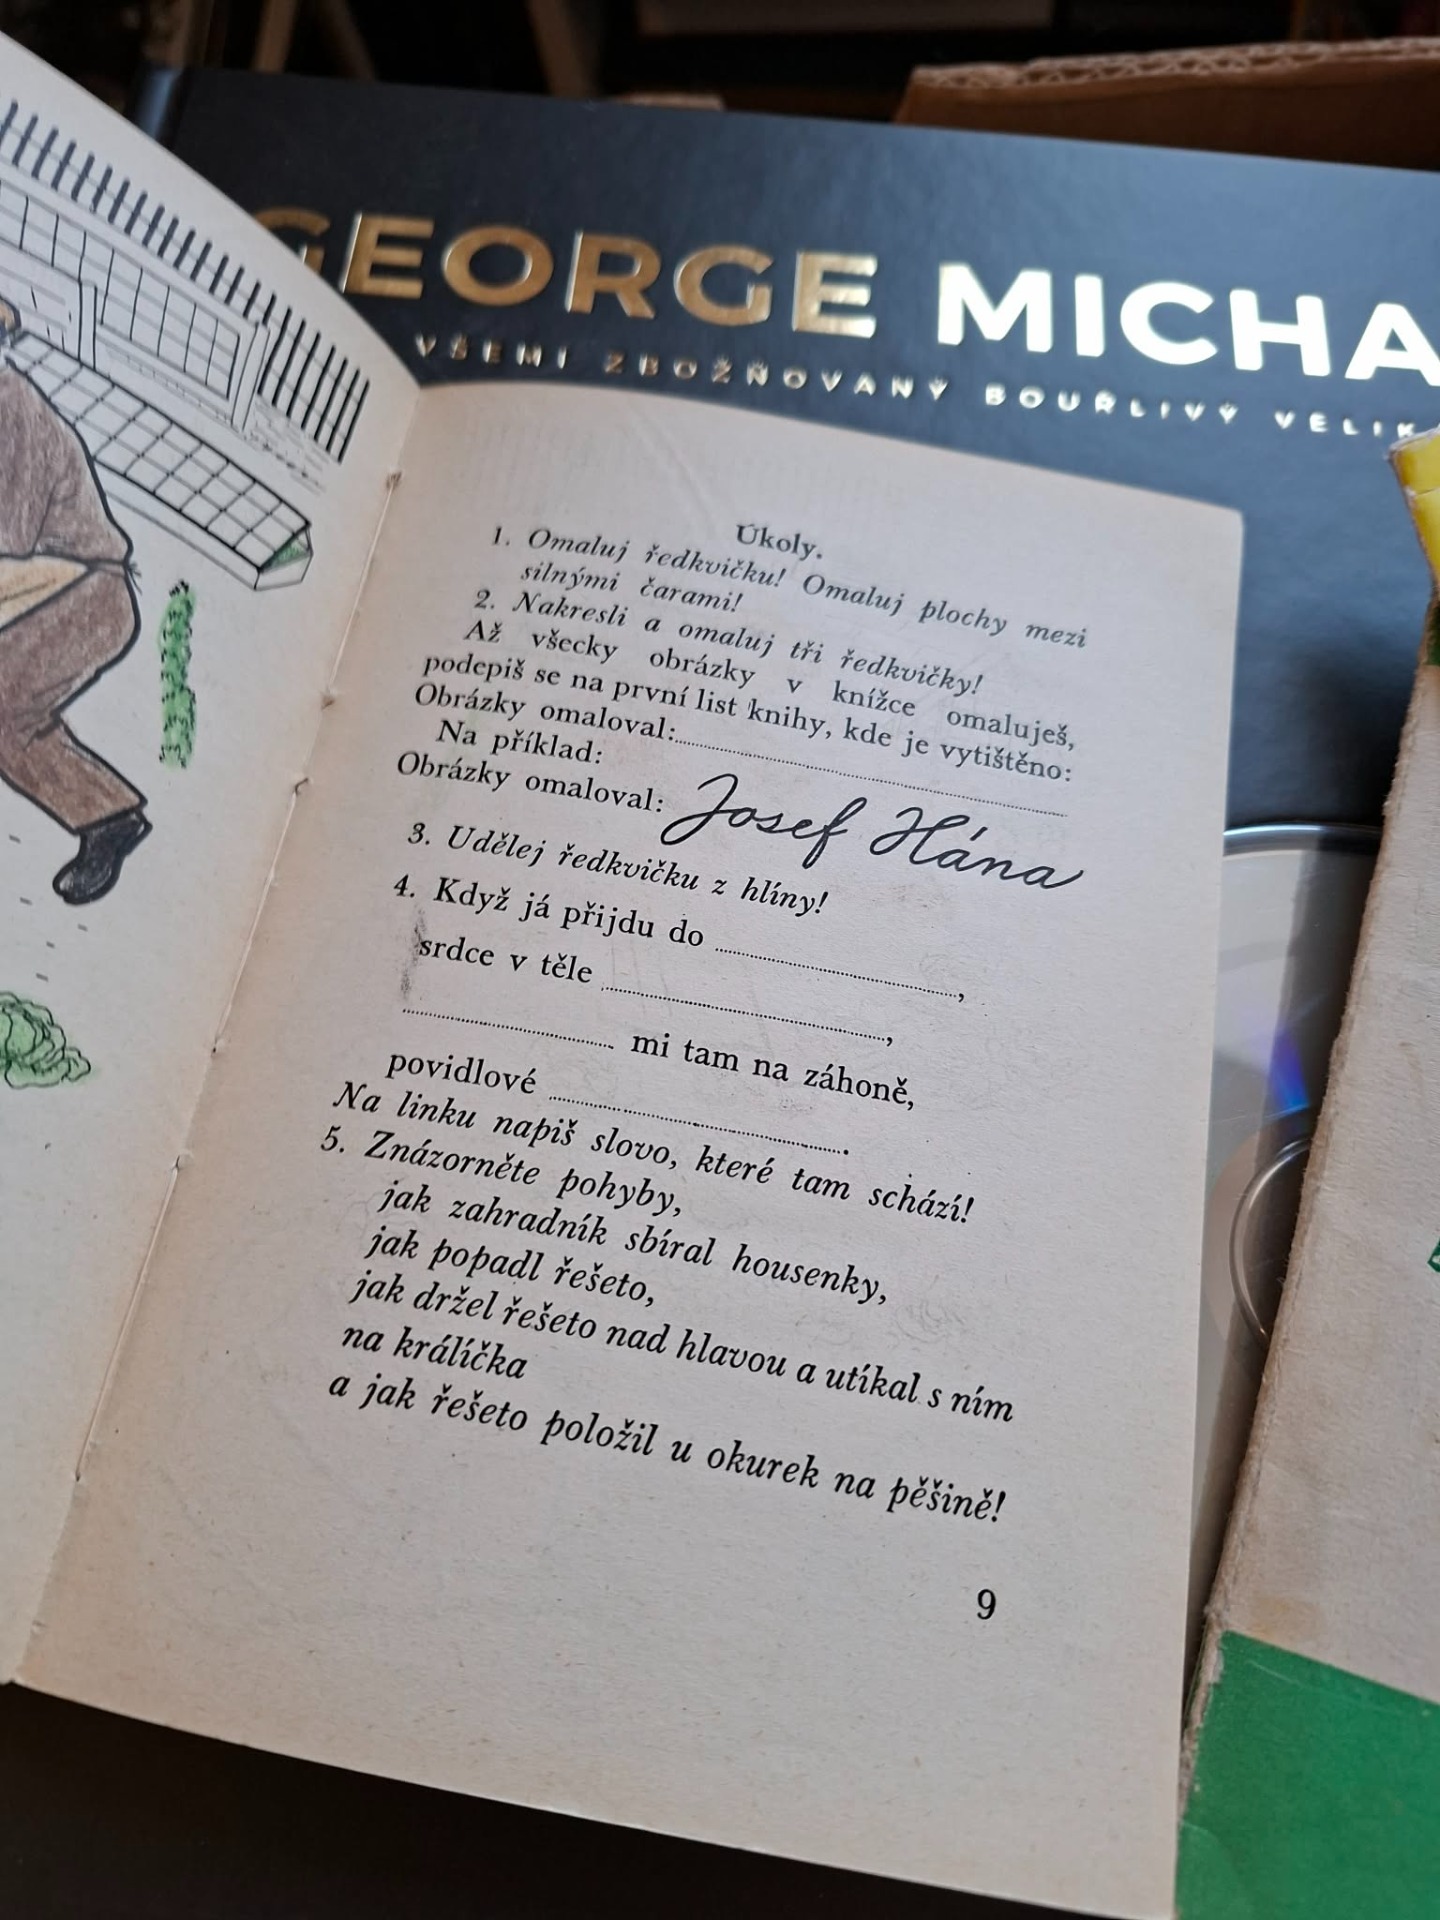 GEORGE MICHA
VŠEMI ZBOŽŇOVANÝ BOUŘLIVÝ VELIK
Úkoly.
1. Omaluj ředkvičku! Omaluj plochy mezi
silnými čarami!
2. Nakresli a omaluj tři ředkvičky!
Až všecky obrázky v knížce omaluješ,
podepiš se na první list knihy, kde je vytištěno:
Obrázky omaloval:
Na příklad:
Obrázky omaloval: Josef Hána
3. Udělej ředkvičku z hlíny!
4. Když já přijdu do ,
srdce v těle ,
mi tam na záhoně,
povidlové .
Na linku napiš slovo, které tam schází!
5. Znázorněte pohyby,
jak zahradník sbíral housenky,
jak popadl řešeto,
jak držel řešeto nad hlavou a utíkal s ním
na králíčka
a jak řešeto položil u okurek na pěšině!
9